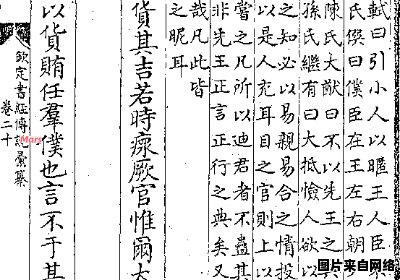 軾曰引小人以暱王人臣
氏僎曰僕臣在王左右朝
陳氏大猷曰不以先王之
孫氏繼有曰大抵憸人欲以
之知必以易親易合之情投
以是人充耳目之官則上以
嘗之凡所以迪君者不蠱其
非先王正言正行之典矣又
哉凡此皆
之昵耳
貨其吉若時瘝厥官惟爾大
以貨賄任羣僕也言不于其
欽定書經傳說彙纂
卷二十
Mars
图片来自网络